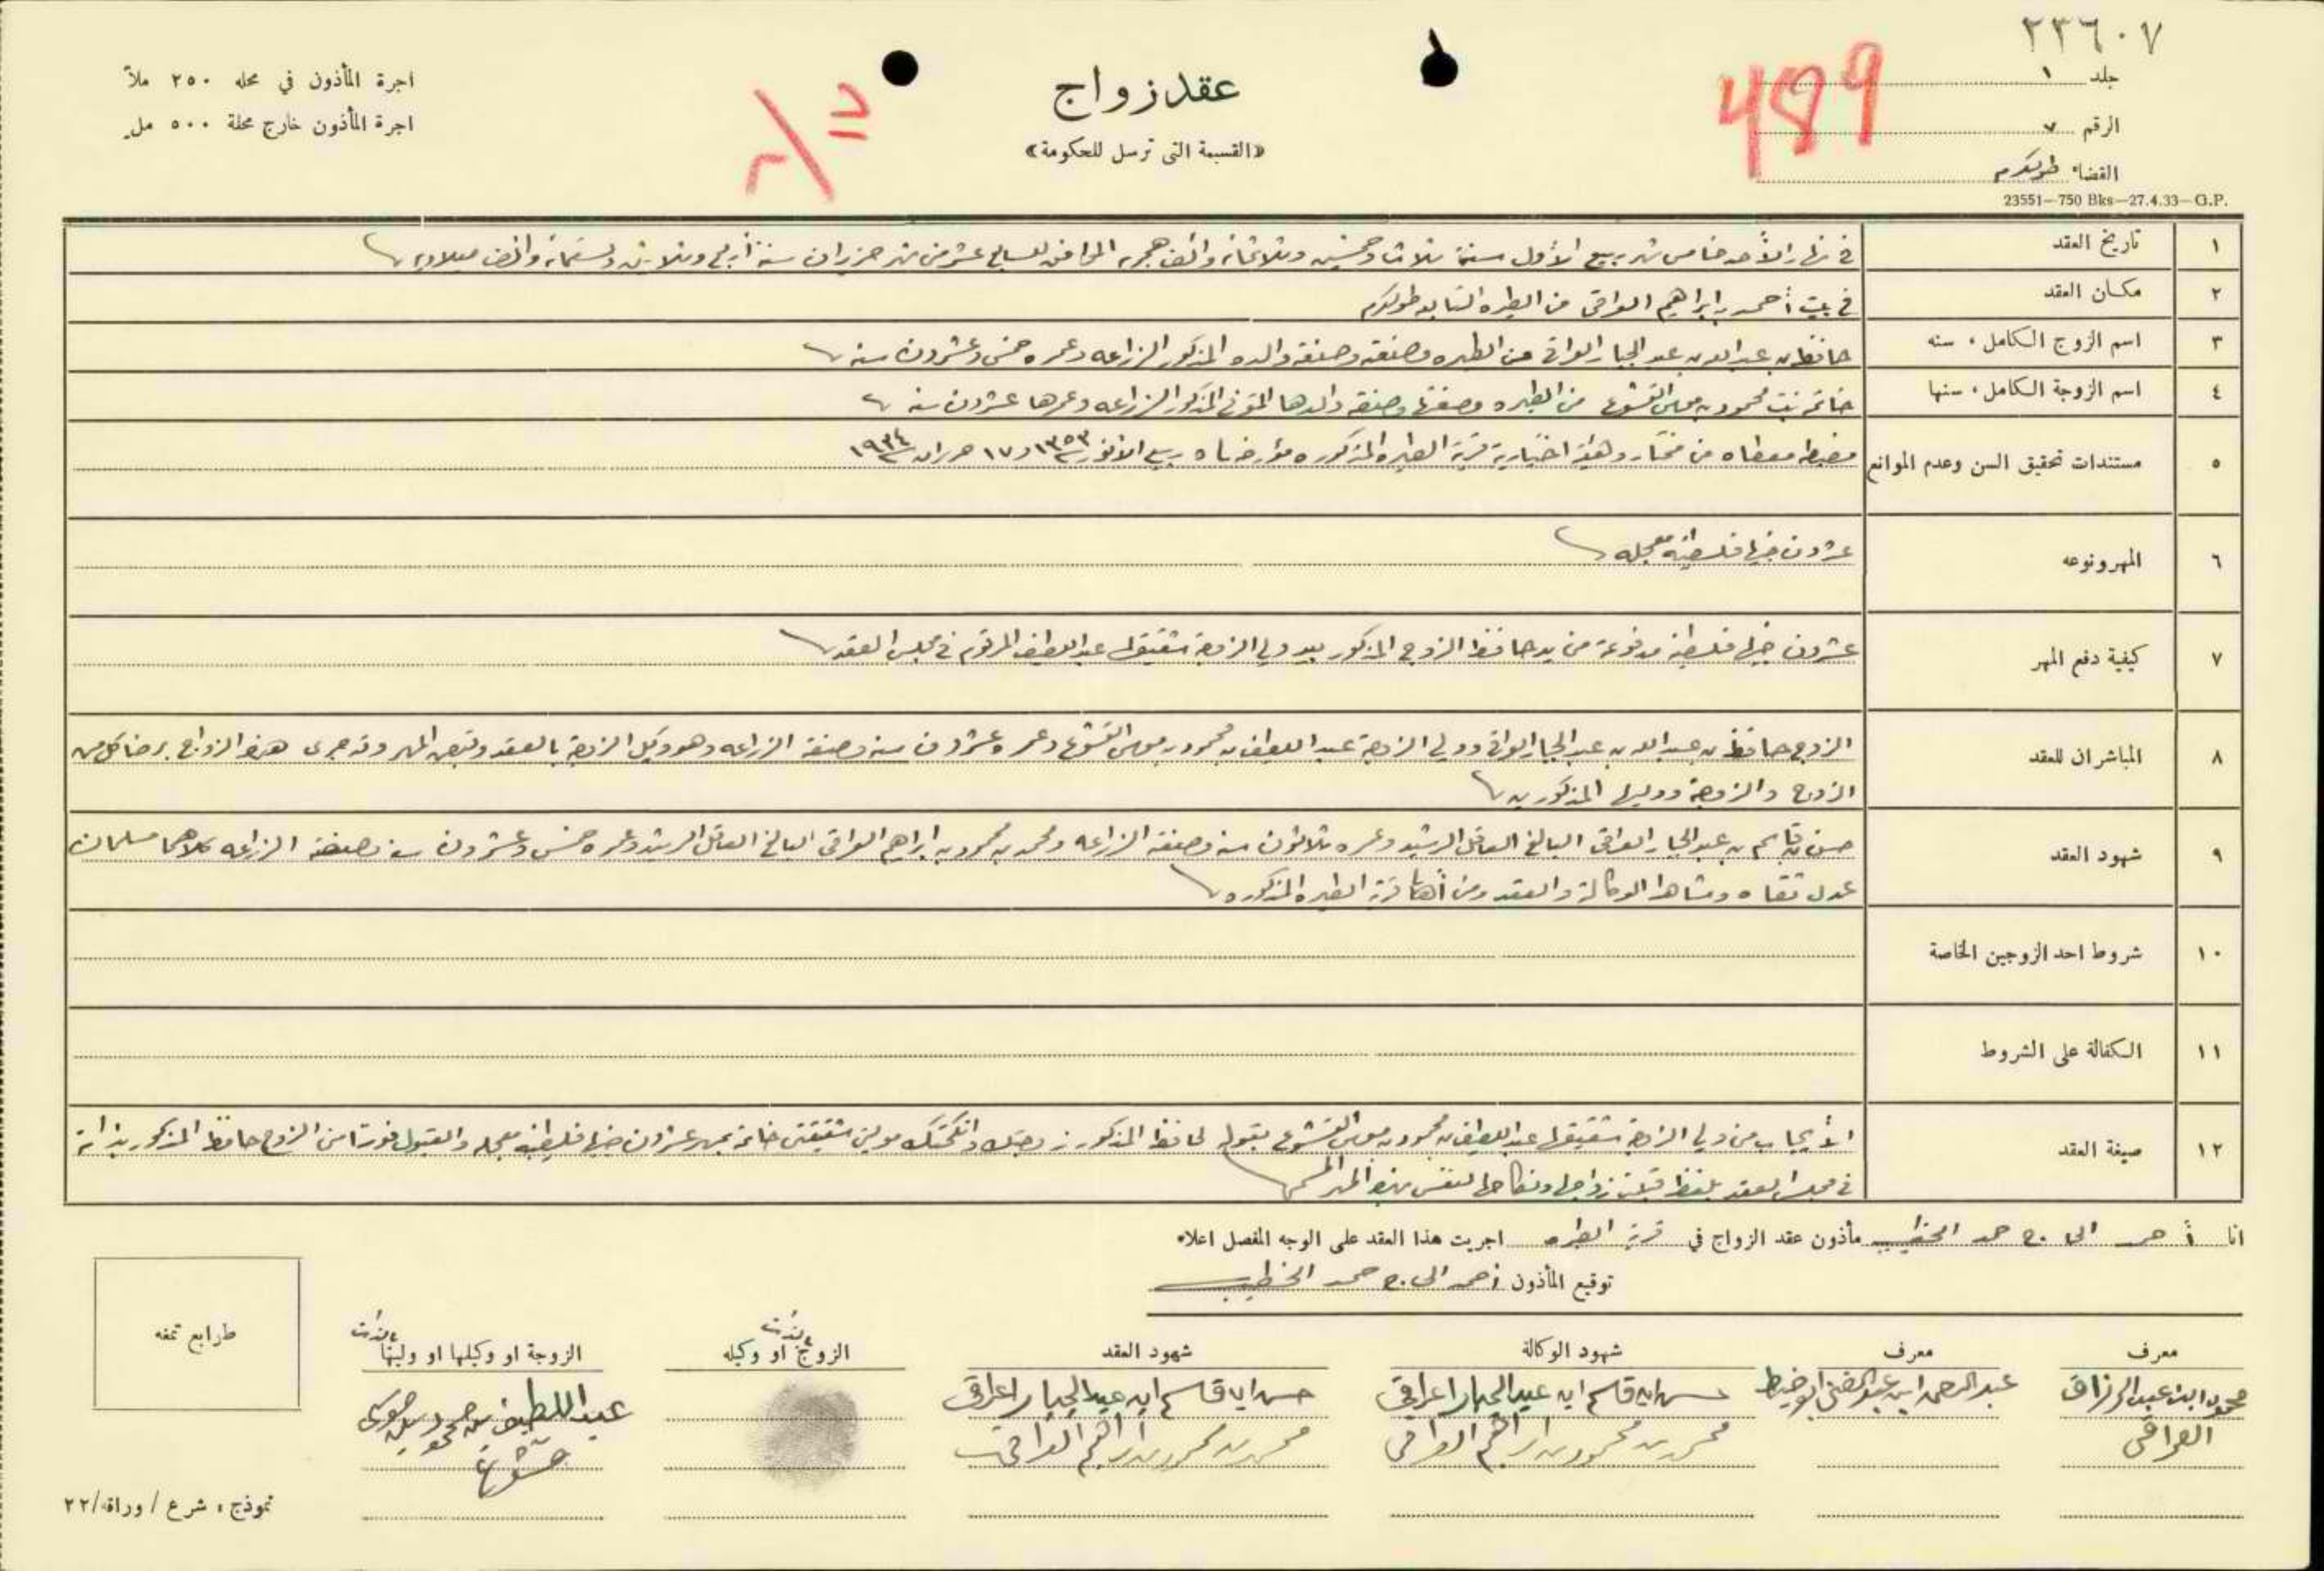 ٢٣٦٠٧
جلد ١
499
الرقم ٧
القضاء طولكرم
23551—750 Bks—27.4.33—G.P.
عقد زواج
«القسيمة التى ترسل للحكومة»
اجرة المأذون في محله ٢٥٠ ملاً
اجرة المأذون خارج محلة ٥٠٠ مل
١ تاريخ العقد في نهار الأحد خامس شهر ربيع الأول سنة ثلاث وخمسين وثلاثمائة وألف هجريه الموافق للسابع عشر من شهر حزيران سنة أربع وثلاثين وتسعمائة وألف ميلاديه
٢ مكان العقد في بيت أحمد بن ابراهيم العراقي من الطيره التابعه طولكرم
٣ اسم الزوج الكامل، سنه حافظ بن عبد الله بن عبد الجبار العراقي من الطيره وصنعته وصنعة والده المذكور الزراعه وعمره خمس وعشرون سنه
٤ اسم الزوجة الكامل، سنها خاتمه بنت محمود بن موسى القشوع من الطيره وصنعتها وصنعة والدها المتوفى المذكور الزراعه وعمرها عشرون سنه
٥ مستندات تحقيق السن وعدم الموانع مضبطه معطاه من مختار وهيئة اختيارية قرية الطيره المذكوره مؤرخه في ٥ ربيع الانور ١٣٥٣ و ١٧ حزيران ١٩٣٤
٦ المهر ونوعه عشرون جنيها فلسطينيه معجله
٧ كيفية دفع المهر عشرون جنيها فلسطينيه مدفوعة من يد حافظ الزوج المذكور بيد ولي الزوجة شقيقها عبد اللطيف المرقوم في مجلس العقد
٨ المباشران للعقد الزوج حافظ بن عبد الله بن عبد الجبار العراقي وولي الزوجة عبد اللطيف بن محمود بن موسى القشوع وعمره عشرون سنه وصنعته الزراعه وهو وكيل الزوجة بالعقد وقبض المهر وقد جرى هذا الزواج برضا كل من
الزوج والزوجة ووليها المذكورين
٩ شهود العقد حسن بن قاسم بن عبد الجبار العراقي البالغ العاقل الرشيد وعمره ثلاثون سنه وصنعته الزراعه ومحمد بن محمود بن ابراهيم العراقي البالغ العاقل الرشيد وعمره خمس وعشرون سنه وصنعته الزراعه كلاهما مسلمان
عدل ثقاه وشاهدا الوكالة والعقد ومن أهالي قرية الطيره المذكوره
١٠ شروط احد الزوجين الخاصة
١١ الكفالة على الشروط
١٢ صيغة العقد الأيجاب من ولي الزوجة شقيقها عبد اللطيف بن محمود بن موسى القشوع بقوله لحافظ المذكور زوجتك وانكحتك موليتي شقيقتي خاتمه بمهر عشرون جنيها فلسطينيه معجله والقبول فورا من الزوج حافظ المذكور بذاته
في مجلس العقد بلفظ قبلت زواجها ونكاحها لنفسي بهذا المهر المسمى
انا أحمد الحاج حمد الخطيب مأذون عقد الزواج في قرية الطيره اجريت هذا العقد على الوجه المفصل اعلاه
توقيع المأذون أحمد الحاج حمد الخطيب
معرف معرف شهود الوكالة شهود العقد الزوج او وكيله الزوجة او وكيلها او وليها
محمود ابن عبد الرزاق العراقي
عبد الرحمن ابن عبد الغني
حسن ابن قاسم ابن عبد الجبار اعراقي
محمد بن محمود بن ابراهيم العراقي
حسن ابن قاسم ابن عبد الجبار اعراقي
محمد بن محمود بن ابراهيم العراقي
عبد اللطيف بن محمود بن موسى
قشوع
طوابع تمغه
نموذج، شرع / وراقة/٢٢